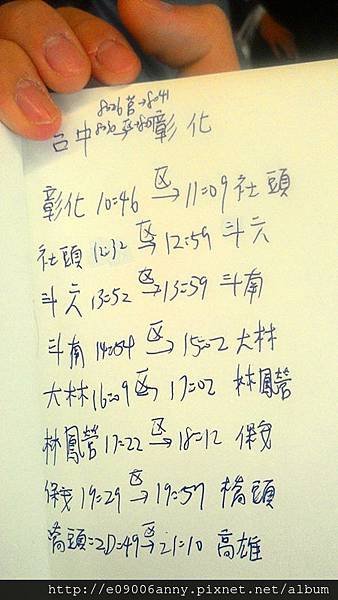 台中 → 彰化
彰化 10:46 区→ 11:09 社頭
社頭 12:32 区→ 12:59 斗六
斗六 13:52 区→ 13:59 斗南
斗南 14:54 区→ 15:02 大林
大林 16:09 区→ 17:02 林鳳營
林鳳營 17:22 区→ 18:12 保安
保安 19:29 区→ 19:57 橋頭
橋頭 20:49 区→ 21:10 高雄
http://e09006anny.pixnet.net/album